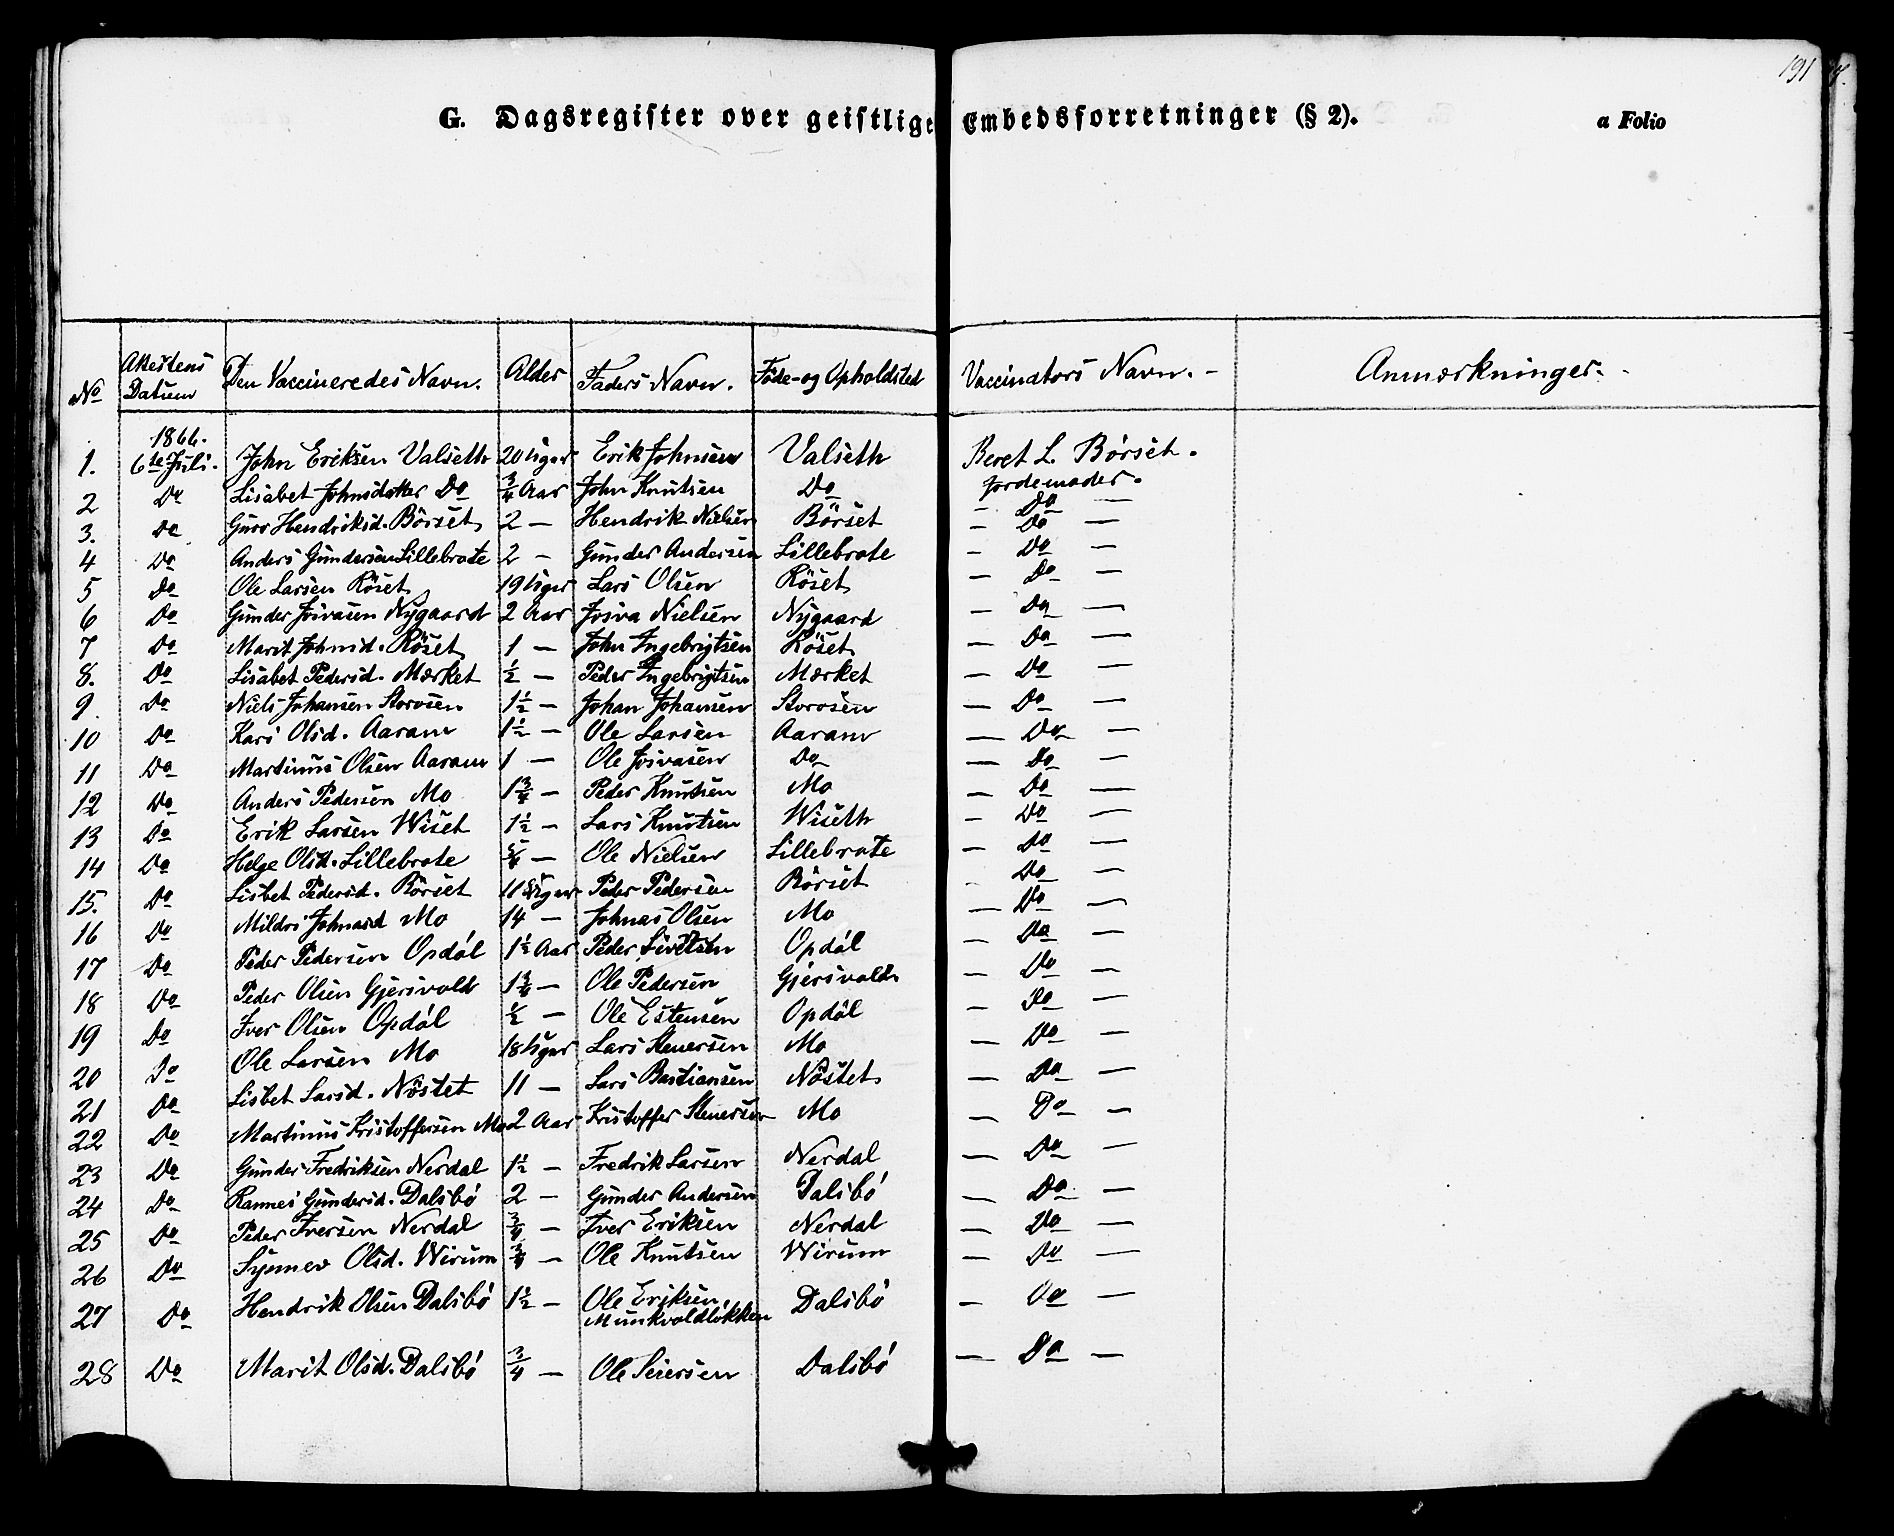 191
G. Dagsregister over geistlige Embedsforretninger (§ 2). a Folio
No Attestens Datum Den Vaccineredes Navn. Alder Faders Navn. Føde- og Opholdsted Vaccinators Navn. - Anmærkninger. -
1866.
1. 6te Juli. John Eriksen Valseth 20 Uger Erik Johnsen Valseth Beret L. Børset.
Jordemoder.
2 Do Lisabet Johnsdatter Do 3/4 Aar John Knutsen Do - Do -
3. Do Guro Hendriksd. Börset 2 - Hendrik Nielsen Börset - Do -
4 Do Anders Gundersen Lillebrote 2 - Gunder Andersen Lillebrote - Do -
5 Do Ole Larsen Röset 19 Uger Lars Olsen Röset - Do -
6 Do Gunder Josvasen Nygaard 2 Aar Josva Nielsen Nygaard - Do -
7 Do Marit Johnsd. Röset 1 - John Ingebrigtsen Röset - Do -
8. Do Lisabet Pedersd. Mærket 1/2 - Peder Ingebrigtsen Mærket - Do -
9 Do Niels Johansen Storosen 1 1/2 - Johan Johansen Storosen - Do -
10 Do Kari Olsd. Aaram 1 1/2 - Ole Larsen Aaram - Do -
11 Do Martinus Olsen Aaram 1 - Ole Josvasen Do - Do -
12 Do Anders Pedersen Mo 1 3/4 - Peder Knutsen Mo - Do -
13 Do Erik Larsen Wiset 1 1/2 - Lars Knutsen Wiseth - Do -
14 Do Helge Olsd. Lillebrote - Ole Nielsen Lillebrote - Do -
15. Do Lisbet Pedersd. Börset 11 Uger Peder Pedersen Börset Do
16 Do Mildri Johnasd Mo 14 - Johnas Olsen Mo - Do -
17 Do Peder Pedersen Opdøl 1 1/2 Aar Peder Sivertsen Opdøl - Do -
18 Do Peder Olsen Gjersvold 1 3/4 - Ole Pedersen Gjersvold - Do -
19 Do Iver Olsen Opdøl 1/2 - Ole Estensen Opdøl - Do -
20 Do Ole Larsen Mo 18 Uger Lars Stenersen Mo - Do -
21 Do Lisbet Larsd. Nöstet 11 - Lars Bastiansen Nöstet - Do -
22 Do Martinus Kristoffersen Mo 2 Aar Kristoffer Stenersen Mo - Do -
23 Do Gunder Fredriksen Nerdal 1 1/2 - Fredrik Larsen Nerdal - Do -
24 Do Rannei Gundersd. Dalsbø 2 - Gunder Andersen Dalsbø - Do -
25 Do Peder Iversen Nerdal 3/4 - Iver Eriksen Nerdal - Do -
26 Do Synnev Olsd. Wirum 3/4 - Ole Knutsen Wirum - Do -
27 Do Hendrik Olsen Dalsbø 1 1/2 - Ole Eriksen Dalsbø - Do -
Munkvoldløkken
28 Do Marit Olsd. Dalsbø 3/4 - Ole Seiersen Dalsbø - Do -